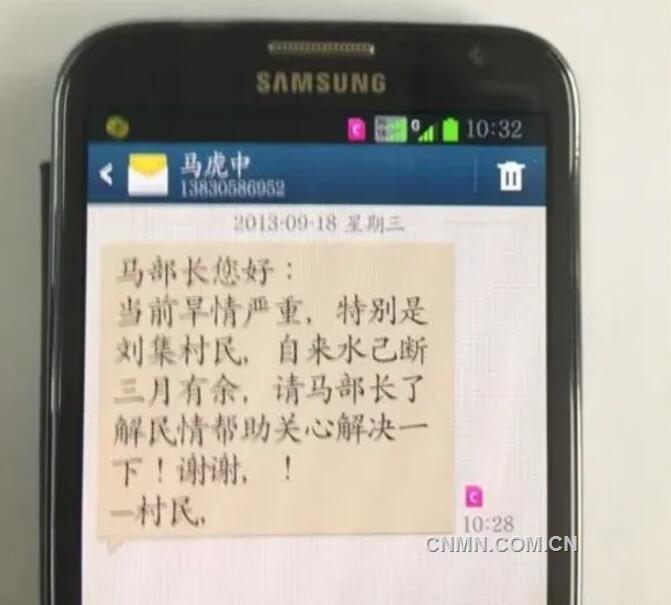 SAMSUNG
10:32
马虎中
13830586952
2013-09-18 星期三
马部长您好：
当前旱情严重，特别是
刘集村民，自来水己断
三月有余，请马部长了
解民情帮助关心解决一
下！谢谢，！
一村民，
10:28
CNMN.COM.CN